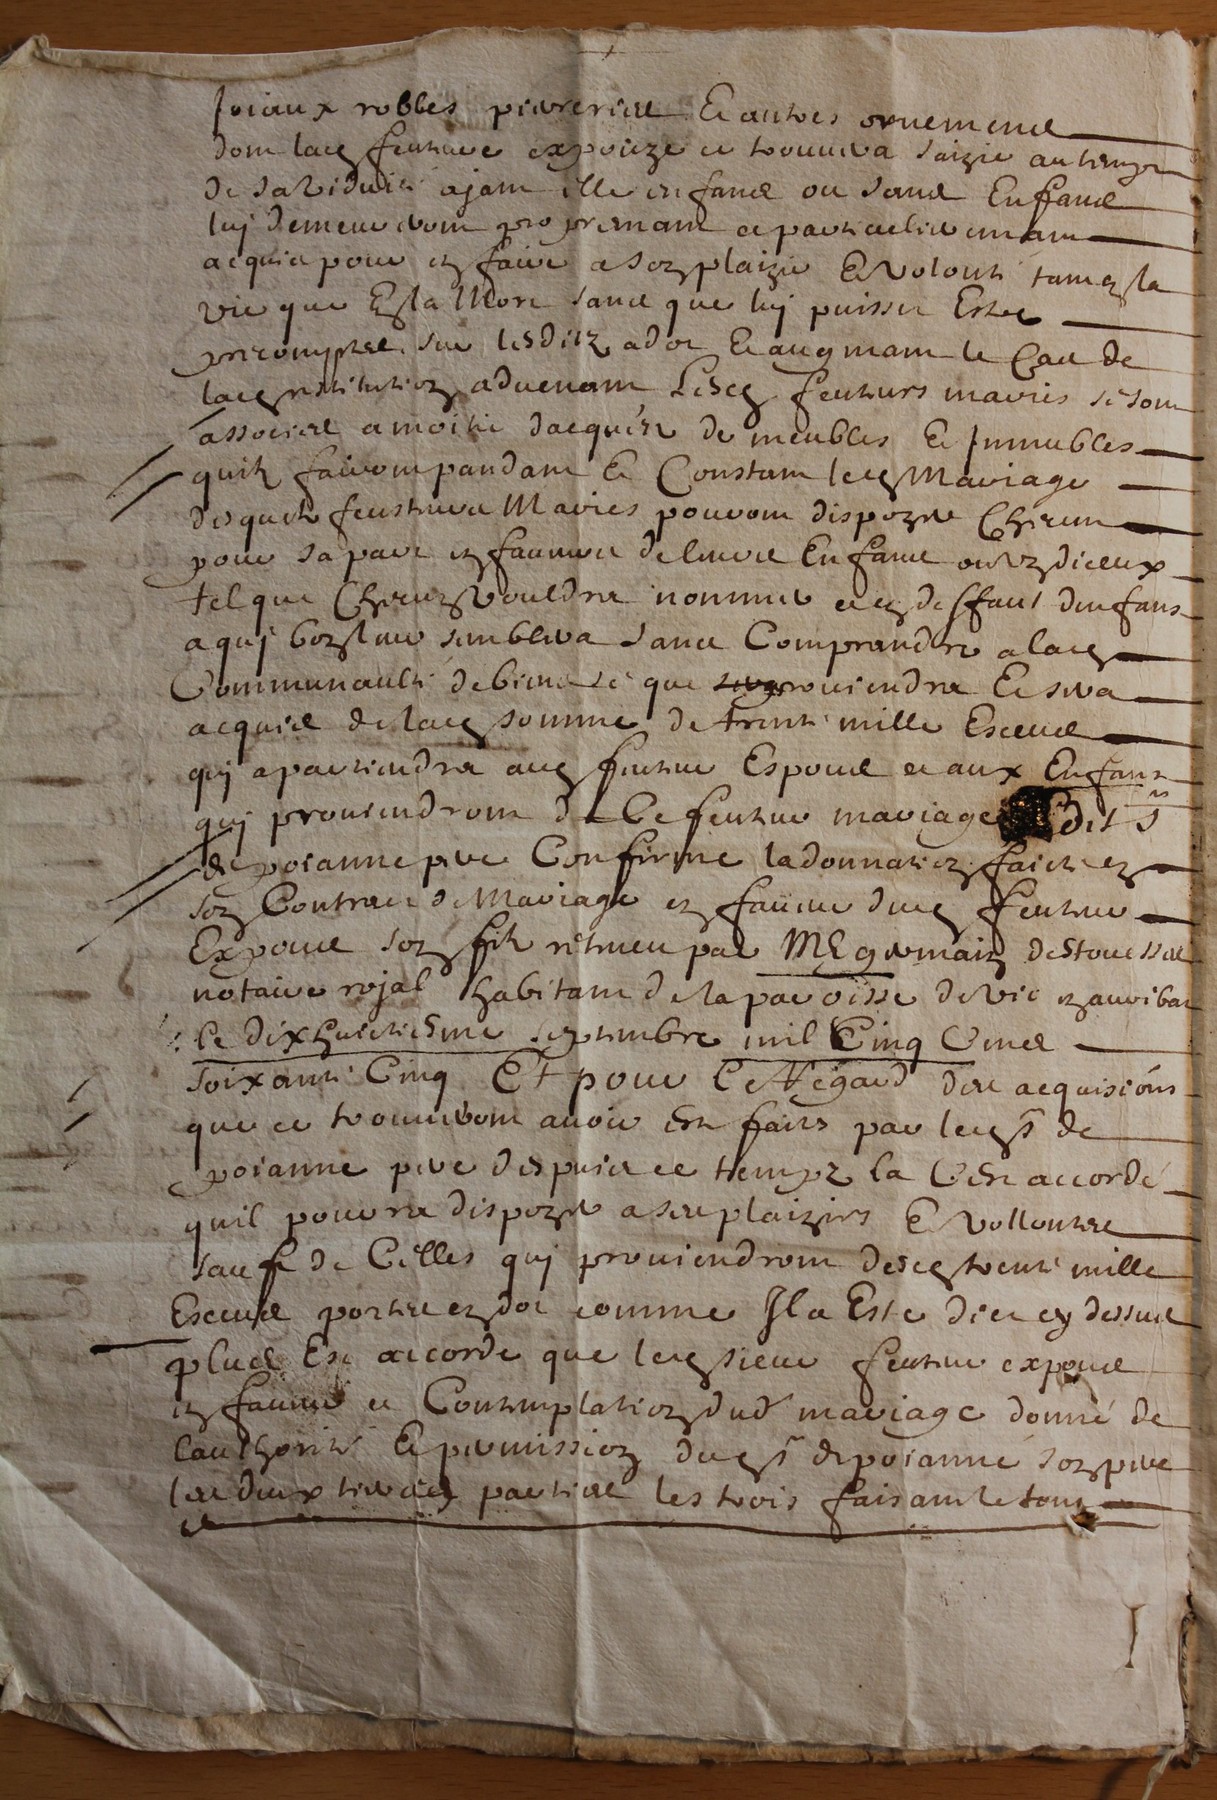 Joiaux robbes pierreries Et autres ornemens
dont lad feuture expouze ce trouuera saizie au temps
de sa viduité ajant elle enfans ou sans Enfans
luj demeureront proprement et particulierement
acquis pour en faire a son plaizir Et volonté tant en la
vie que En la Mort sans que luj puisse Estre
precomptés sur lesditz adot Et augmant le Cas de
lad restitution aduenant Lesd feuturs mariés se sont
associés a moitié dacquétz de meubles Et Jmmubles
quilz fairont pandant Et Constant led Mariage
desquelz feusturs Mariés pouront dispozer Chacun
pour sa part en faueur de leurs Enfans ou un diceux
tel que Chacun vouldra nommer et en deffaut denfans
a quj bon leur semblera sans Comprandre a lad
Communaulté de biens se que prouiendra Et sera
acquis de lad somme de trente mille Escus
quj apartiendra aud feutur Espoux et aux Enfans
quj prouiendront de Ce feutur mariage ledit sr
de poianne pere Confirme la donnation faicte en
son Contract de Mariage en faueur dud feutur
Expoux son filz reteneu par Me germain destouesses
notaire rojal habitant de la paroisse de vic en auribat
le dix huictiesme septembre mil Cinq Cens
soixante Cinq Et pour le regard des acquisions
que ce trouueront auoir esté faits par led sr de
poianne pere despuis ce temps la Cest accordé
quil pourra dispozer a ses plaizirs Et vollontes
sauf de Celles quj prouiendront desd trente mille
Escus portés en dot comme Jl a Esté dict cy dessus
plus Est accordé que led sieur feutur expoux
en faueur et Contemplation dud mariage donné de
lauthorité Et permission dud sr de poianne son pere
les deux tierces parties les trois faisant le tout